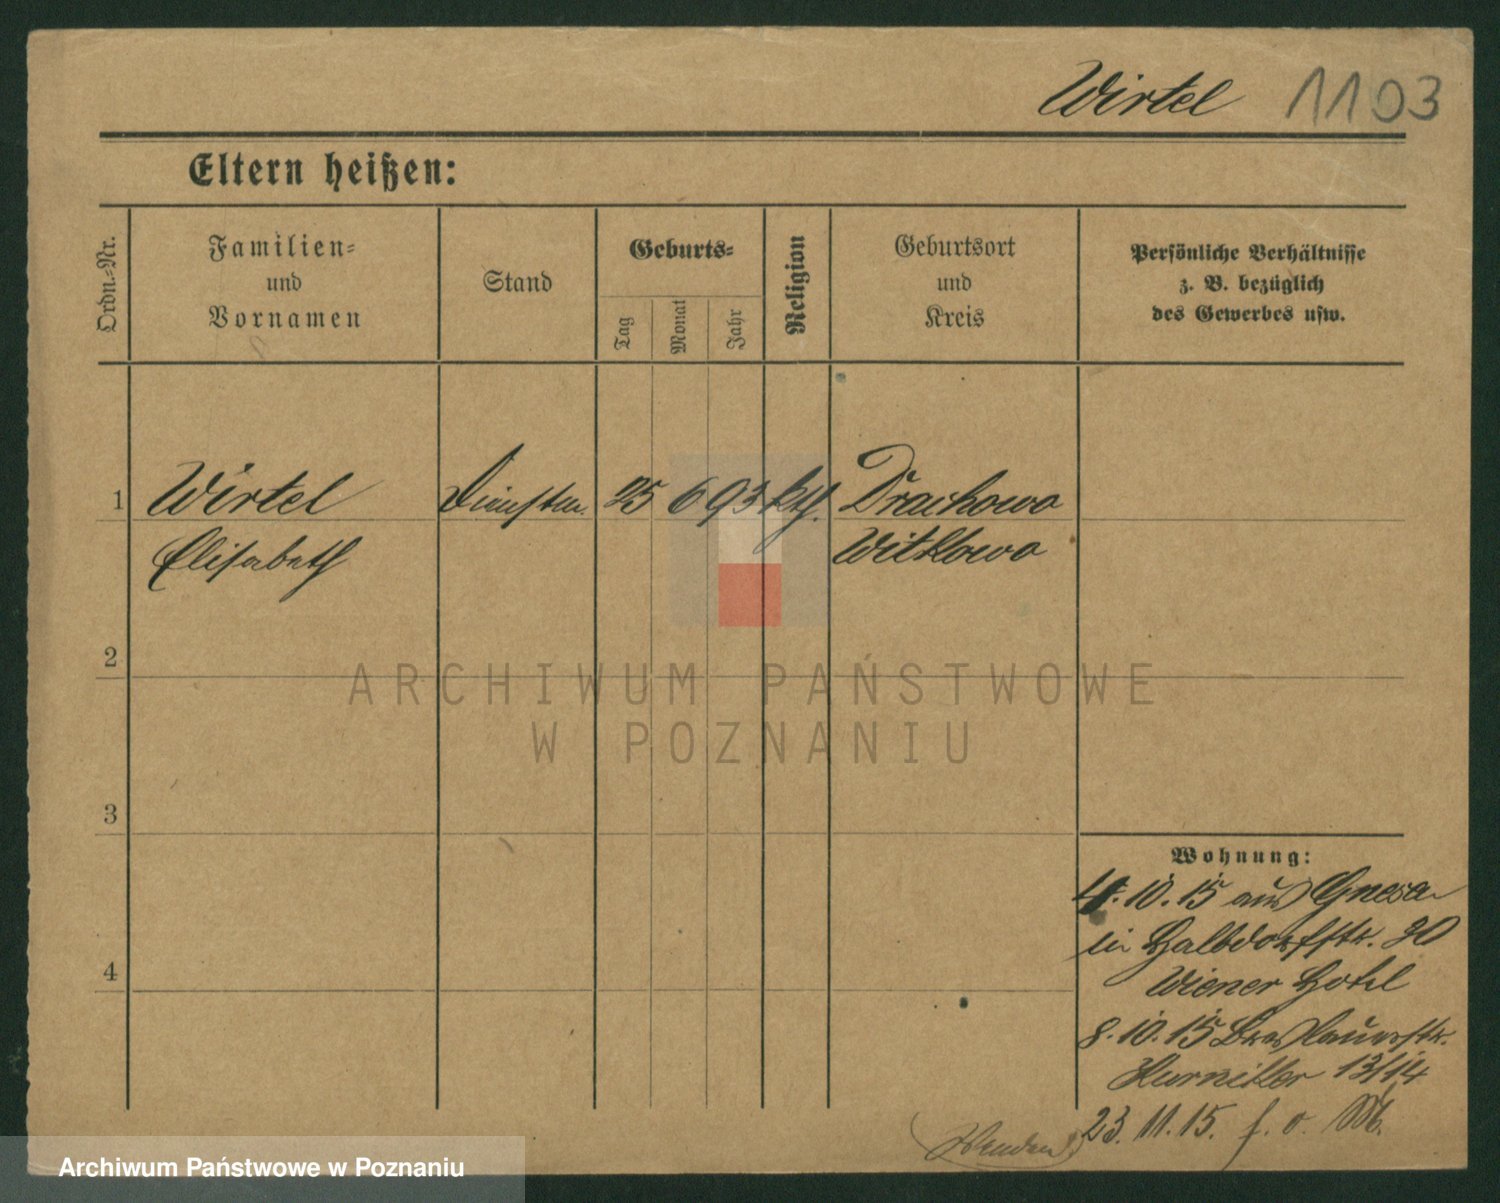 Wirtel 1103
Eltern heißen:
Ordn.-Nr.
Familien-
und
Vornamen
Stand
Geburts-
Tag
Monat
Jahr
Religion
Geburtsort
und
Kreis
Persönliche Verhältnisse
z. B. bezüglich
des Gewerbes usw.
1 Wirtel 25 6 93 kth. Drachowo
Elisabeth Witkowo
2
3
4
ARCHIWUM PAŃSTWOWE
W POZNANIU
Wohnung:
4.10.15 aus Gnesen
in Halbdorfstr. 30
Wiener Hotel
8.10.15
13/14
23.11.15. f. o.
Wenden!
Archiwum Państwowe w Poznaniu